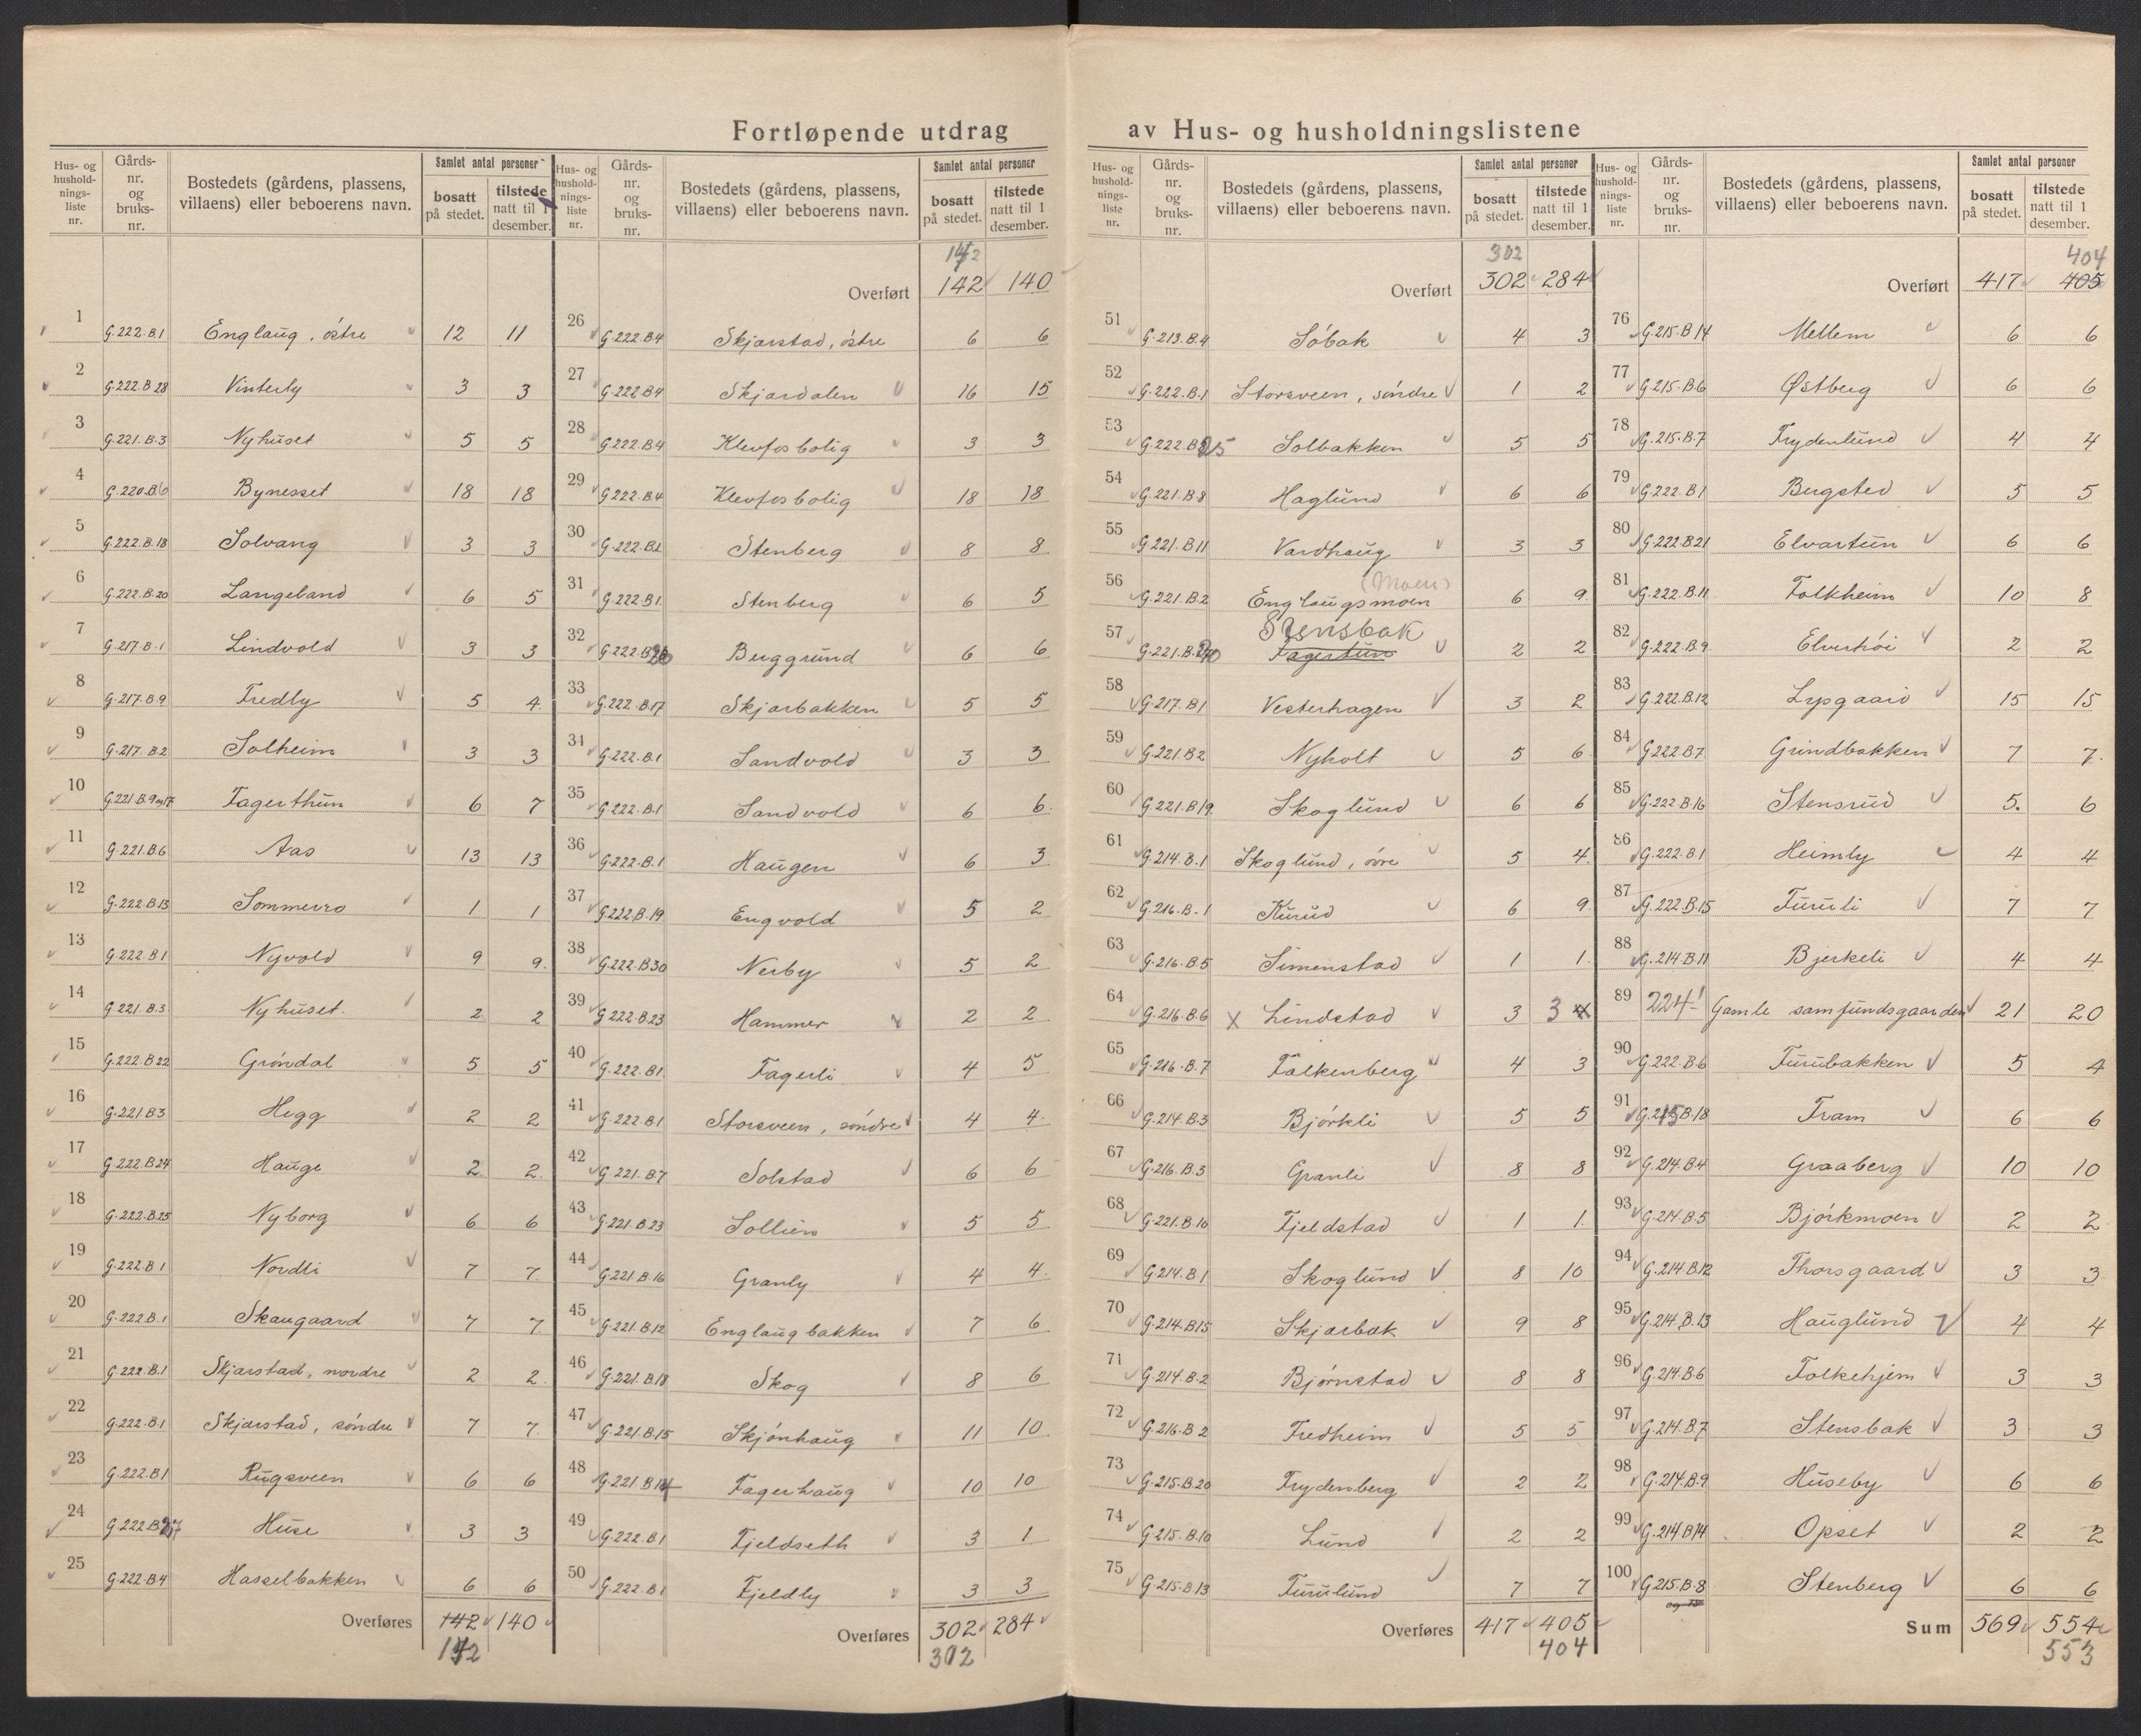 Fortløpende utdrag av Hus- og husholdningslistene
Hus- og hushold-nings-liste nr. | Gårds-nr. og bruks-nr. | Bostedets (gårdens, plassens, villaens) eller beboerens navn. | Samlet antal personer | bosatt på stedet. | tilstede natt til 1 desember.
1 G.222.B.1 Englaug, östre 12 11
2 G.222.B.28 Vinterly 3 3
3 G.221.B.3 Nyhuset 5 5
4 G.220.B.6 Bynesset 18 18
5 G.222.B.18 Solvang 3 3
6 G.222.B.20 Langeland 6 5
7 G.217.B.1 Lindvold 3 3
8 G.217.B.9 Fredly 5 4
9 G.217.B.2 Solheim 3 3
10 G.221.B.9og17 Fagerthun 6 7
11 G.221.B.6 Aas 13 13
12 G.222.B.13 Sommerro 1 1
13 G.222.B1 Nyvold 9 9
14 G.221.B.3 Nyhuset 2 2
15 G.222.B22 Gröndal 5 5
16 G.221.B3 Hegg 2 2
17 G.222.B24 Hauge 2 2
18 G.222.B.25 Nyborg 6 6
19 G.222.B1 Nordli 7 7
20 G.222.B.1 Skaugaard 7 7
21 G.222.B.1 Skjærstad, nordre 2 2
22 G.222.B.1 Skjærstad, söndre 7 7
23 G.222.B1 Rugsveen 6 6
24 G.222.B27 Huse 3 3
25 G.222.B.4 Hasselbakken 6 6
Overføres 142 140
142
Hus- og hushold-nings-liste nr. | Gårds-nr. og bruks-nr. | Bostedets (gårdens, plassens, villaens) eller beboerens navn. | Samlet antal personer | bosatt på stedet. | tilstede natt til 1 desember.
142
Overført 142 140
26 G.222.B4 Skjærstad, östre 6 6
27 G.222.B4 Skjærdalen 16 15
28 G.222.B4 Klevfosbolig 3 3
29 G.222.B4 Klevfosbolig 18 18
30 G.222.B2 Stenberg 8 8
31 G.222.B1 Stenberg 6 5
32 G.222.B26 Berggrund 6 6
33 G.222.B.17 Skjærbakken 5 5
31 G.222.B.1 Sandvold 3 3
35 G.222.B.1 Sandvold 6 6
36 G.222.B.1 Haugen 6 3
37 G.222.B.19 Engvold 5 2
38 G.222.B30 Nerby 5 2
39 G.222.B.23 Hammer 2 2
40 G.222.B1 Fagerli 4 5
41 G.222.B1 Storsveen, söndre 4 4
42 G.221.B7 Solstad 6 6
43 G.221.B.23 Sollien 5 5
44 G.221.B.16 Granly 4 4
45 G.221.B.12 Englaugbakken 7 6
46 G.221.B.18 Skog 8 6
47 G.221.B.15 Skjönhaug 11 10
48 G.221.B14 Fagerhaug 10 10
49 G.222.B1 Fjeldseth 3 1
50 G.222.B1 Fjeldly 3 3
Overføres 302 284
302
Hus- og hushold-nings-liste nr. | Gårds-nr. og bruks-nr. | Bostedets (gårdens, plassens, villaens) eller beboerens navn. | Samlet antal personer | bosatt på stedet. | tilstede natt til 1 desember.
302
Overført 302 284
51 G.213.B.4 Söbak 4 3
52 G.222.B.1 Storsveen, söndre 1 2
53 G.222.B25 Solbakken 5 5
54 G.221.B8 Haglund 6 6
55 G.221.B11 Vardhaug 3 3
(Moen)
56 G.221.B.2 Englaugsmoen 6 9
Stensbak
57 G.221.B.20 Fagertun 2 2
58 G.217.B1 Vesterhagen 3 2
59 G.221.B2 Nyholt 5 6
60 G.221.B19 Skoglund 6 6
61 G.214.B.1 Skoglund, övre 5 4
62 G.216.B.1 Kurud 6 9
63 G.216.B5 Simenstad 1 1
64 G.216.B.6 x Lindstad 3 3
65 G.216.B.7 Falkenberg 4 3
66 G.214.B.3 Björkli 5 5
67 G.216.B.3 Granli 8 8
68 G.221.B.10 Fjeldstad 1 1
69 G.214.B.1 Skoglund 8 10
70 G.214.B15 Skjærbæk 9 8
71 G.214.B.2 Björnstad 8 8
72 G.216.B2 Fredheim 5 5
73 G.215.B.20 Frydenberg 2 2
74 G.215.B.10 Lund 2 2
75 G.215.B13 Furulund 7 7
Overføres 417 405
404
Hus- og hushold-nings-liste nr. | Gårds-nr. og bruks-nr. | Bostedets (gårdens, plassens, villaens) eller beboerens navn. | Samlet antal personer | bosatt på stedet. | tilstede natt til 1 desember.
404
Overført 417 405
76 G.215.B14 Mellem 6 6
77 G.215.B.6 Østberg 6 6
78 G.215.B.7 Frydenlund 4 4
79 G.222.B1 Bergsted 5 5
80 G.222.B21 Elvartun 6 6
81 G.222.B.11 Folkheim 10 8
82 G.222.B.9 Elverhöi 2 2
83 G.222.B.12 Lysgaard 15 15
84 G.222.B7 Grindbakken 7 7
85 G.222.B.16 Stensrud 5 6
86 G.222.B.1 Heimly 4 4
87 G.222.B.15 Furuli 7 7
88 G.214.B.11 Bjerkeli 4 4
89 224-1 Gamle samfundsgaarden 21 20
90 G.222.B.6 Furubakken 5 4
91 G.215.B.18 Fram 6 6
92 G.214.B.4 Graaberg 10 10
93 G.214.B.5 Björkmoen 2 2
94 G.214.B12 Thorsgaard 3 3
95 G.214.B.13 Hauglund 4 4
96 G.214.B.6 Folkehjem 3 3
97 G.214.B.7 Stensbak 3 3
98 G.214.B.9 Huseby 6 6
99 G.214.B14 Opset 2 2
100 G.215.B.8 Stenberg 6 6
Sum 569 554
553